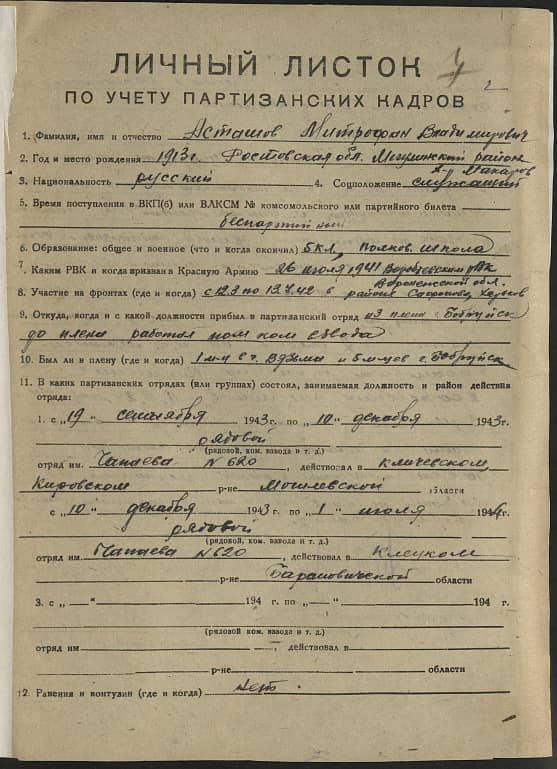 ЛИЧНЫЙ ЛИСТОК
2
ПО УЧЕТУ ПАРТИЗАНСКИХ КАДРОВ
1. Фамилия, имя и отчество Асташов Митрофан Владимирович
2. Год и место рождения 1913 г. Ростовская обл. Мигулинский район
х-р Макаров
3. Национальность русский 4. Соцположение служащий
5. Время поступления в ВКП(б) или ВЛКСМ № комсомольского или партийного билета
беспартийный
6. Образование: общее и военное (что и когда окончил) 5 кл, полков. школа
7. Каким РВК и когда призван в Красную Армию 26 июля 1941 РВК
Воронежской обл.
8. Участие на фронтах (где и когда) с 12.3 по 13.7.42 в районе
9. Откуда, когда и с какой должности прибыл в партизанский отряд из плена г. Бобруйск
до плена работал пом ком взвода
10. Был ли в плену (где и когда) 1 м-ц в г. Вязьма и 5 м-цов г. Бобруйск
11. В каких партизанских отрядах (или группах) состоял, занимаемая должность и район действия
отряда:
1. с „19“ сентября 1943 г. по „10“ декабря 1943 г.
рядовой
(рядовой, ком. взвода и т. д.)
отряд им. Чапаева N 620, действовал в Кличевском,
Кировском р-не Могилевской области
с „10“ декабря 1943 г. по „1“ июля 1944 г.
рядовой
(рядовой, ком. взвода и т. д.)
отряд им. Чапаева N 620, действовал в Клецком
р-не Барановической области
3. с „—“ 194 г. по „—“ 194 г.
(рядовой ком. взвода и т. д.)
отряд им , действовал в
р-не области
12. Ранения и контузии (где и когда) нет.